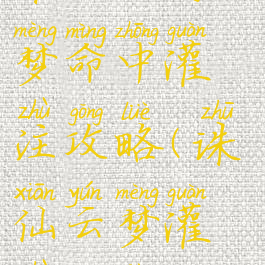 mèng mìng zhōng guàn
梦命中灌
zhù gōng lüè zhū
注攻略(诛
xiān yún mèng guàn
仙云梦灌